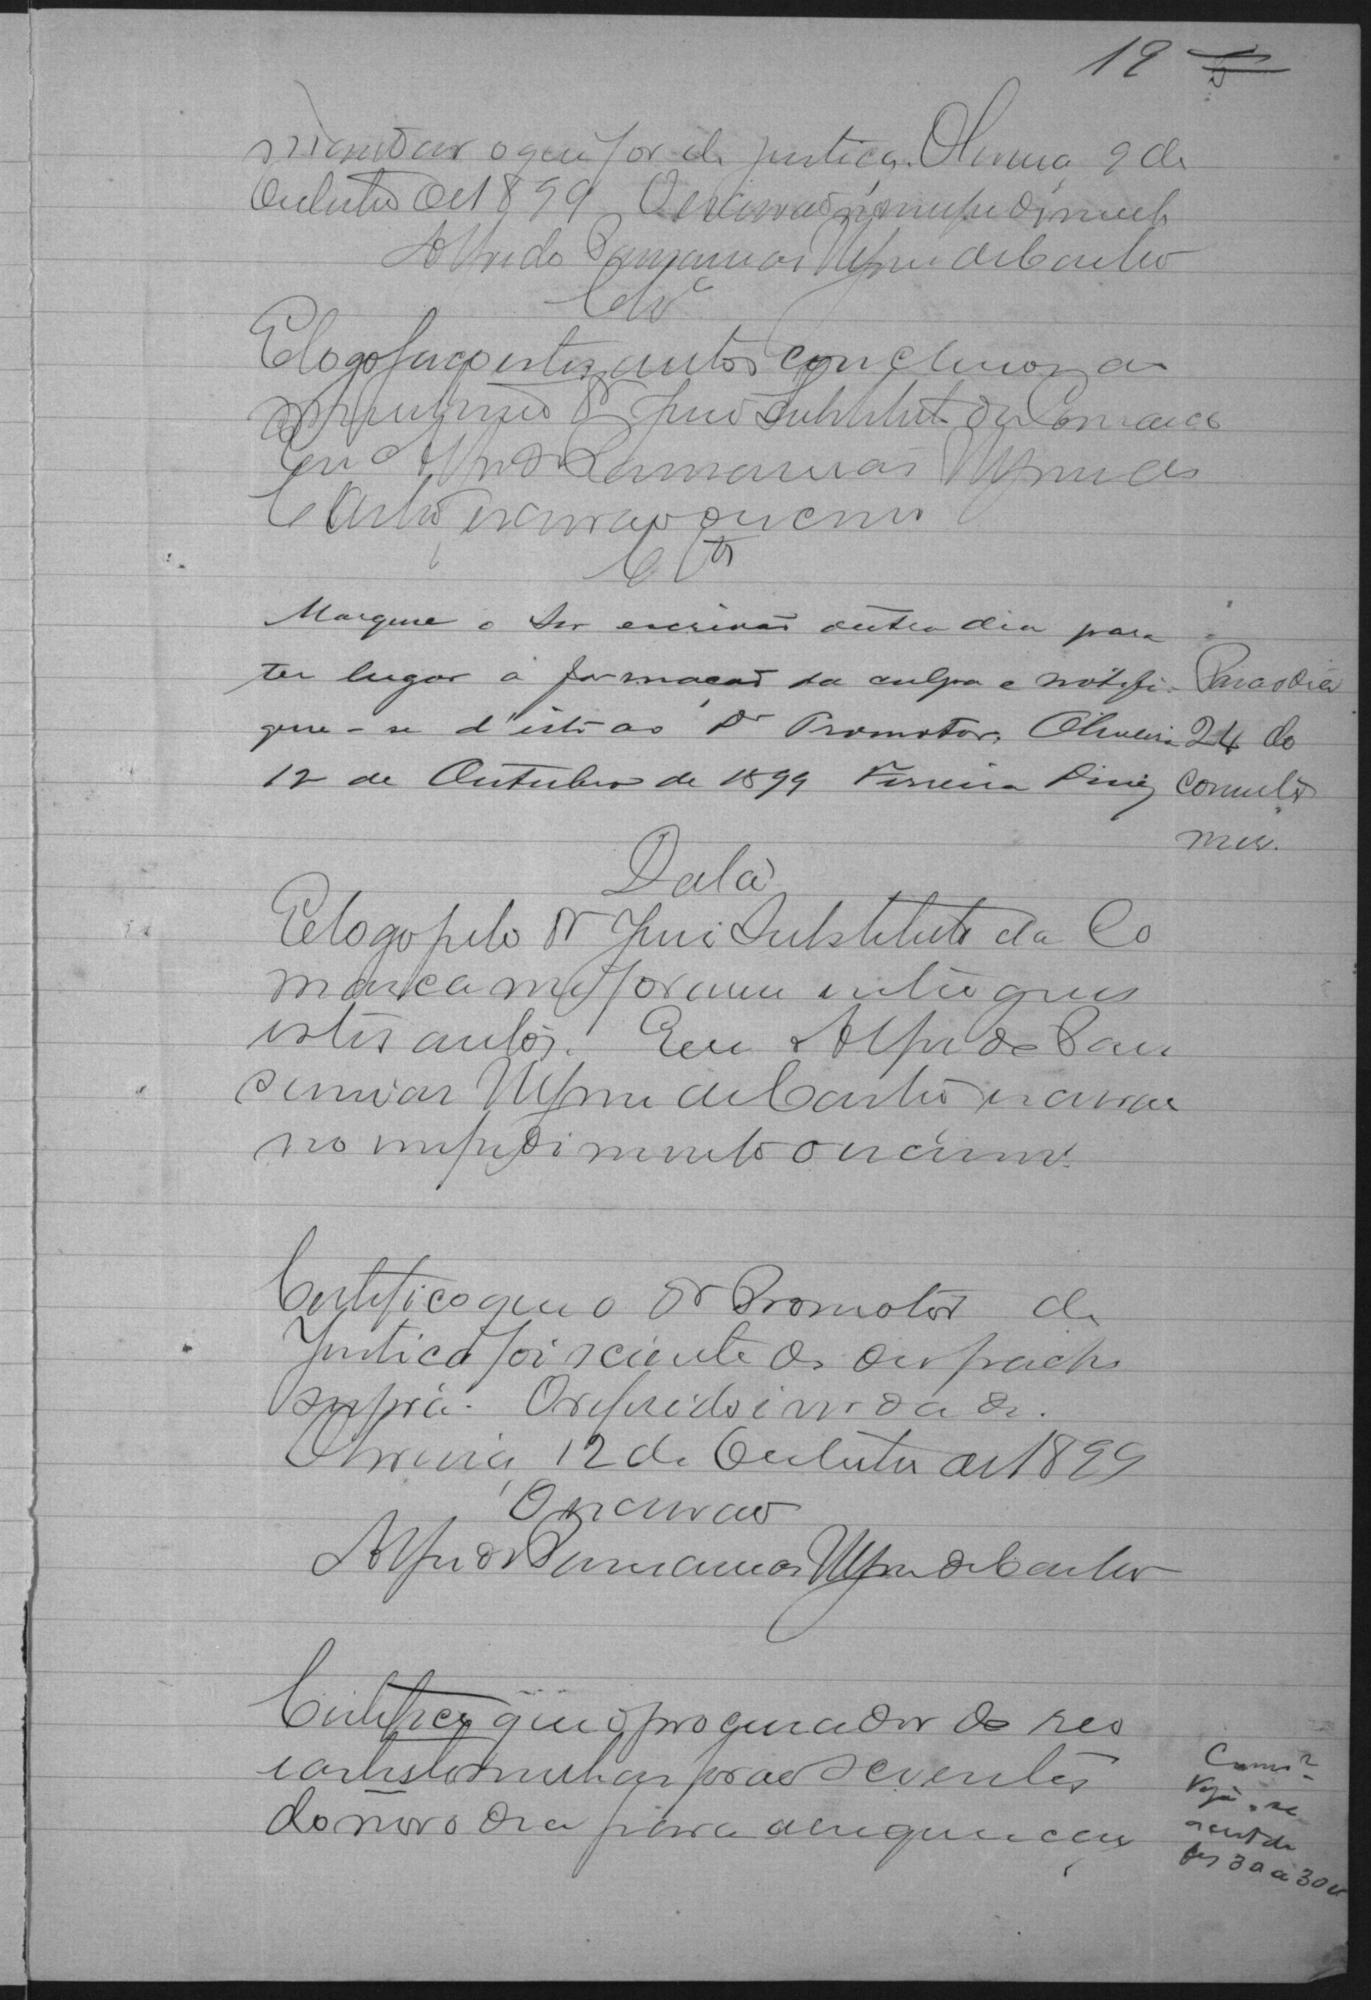 19
mandar o que for de justiça. Oliveira 9 de
Outubro de 1899 O escrivão no impedimento
Alfredo de Castro
Clsº
E logo faço estes autos conclusos ao
Dr Juiz Substituto da Comarca
Eu Alfredo
Castro escrivão o escrevi
Clos
Marque o Snr escrivão outro dia para
ter lugar a formação da culpa e notifi-
que-se d'isto ao Dr Promotor. Oliveira
12 de Outubro de 1899 Ferreira Diniz
Para o dia
24 do
corrente
mez.
Data
E logo pelo Dr Juiz Substituto da Co
marca me foram entregues
estes autos. Eu Alfredo
de Castro escrivão
no impedimento o escrevi.
Certifico que o Dr Promotor de
Justiça foi sciente do despacho
supra. O referido é verdade.
Oliveira 12 de Outubro de 1899
O escrivão
Alfredo de Castro
Certifico que o procurador do reo
e as testemunhas foram scientes
do novo dia para a
Veja-se
fls 30 a 30v